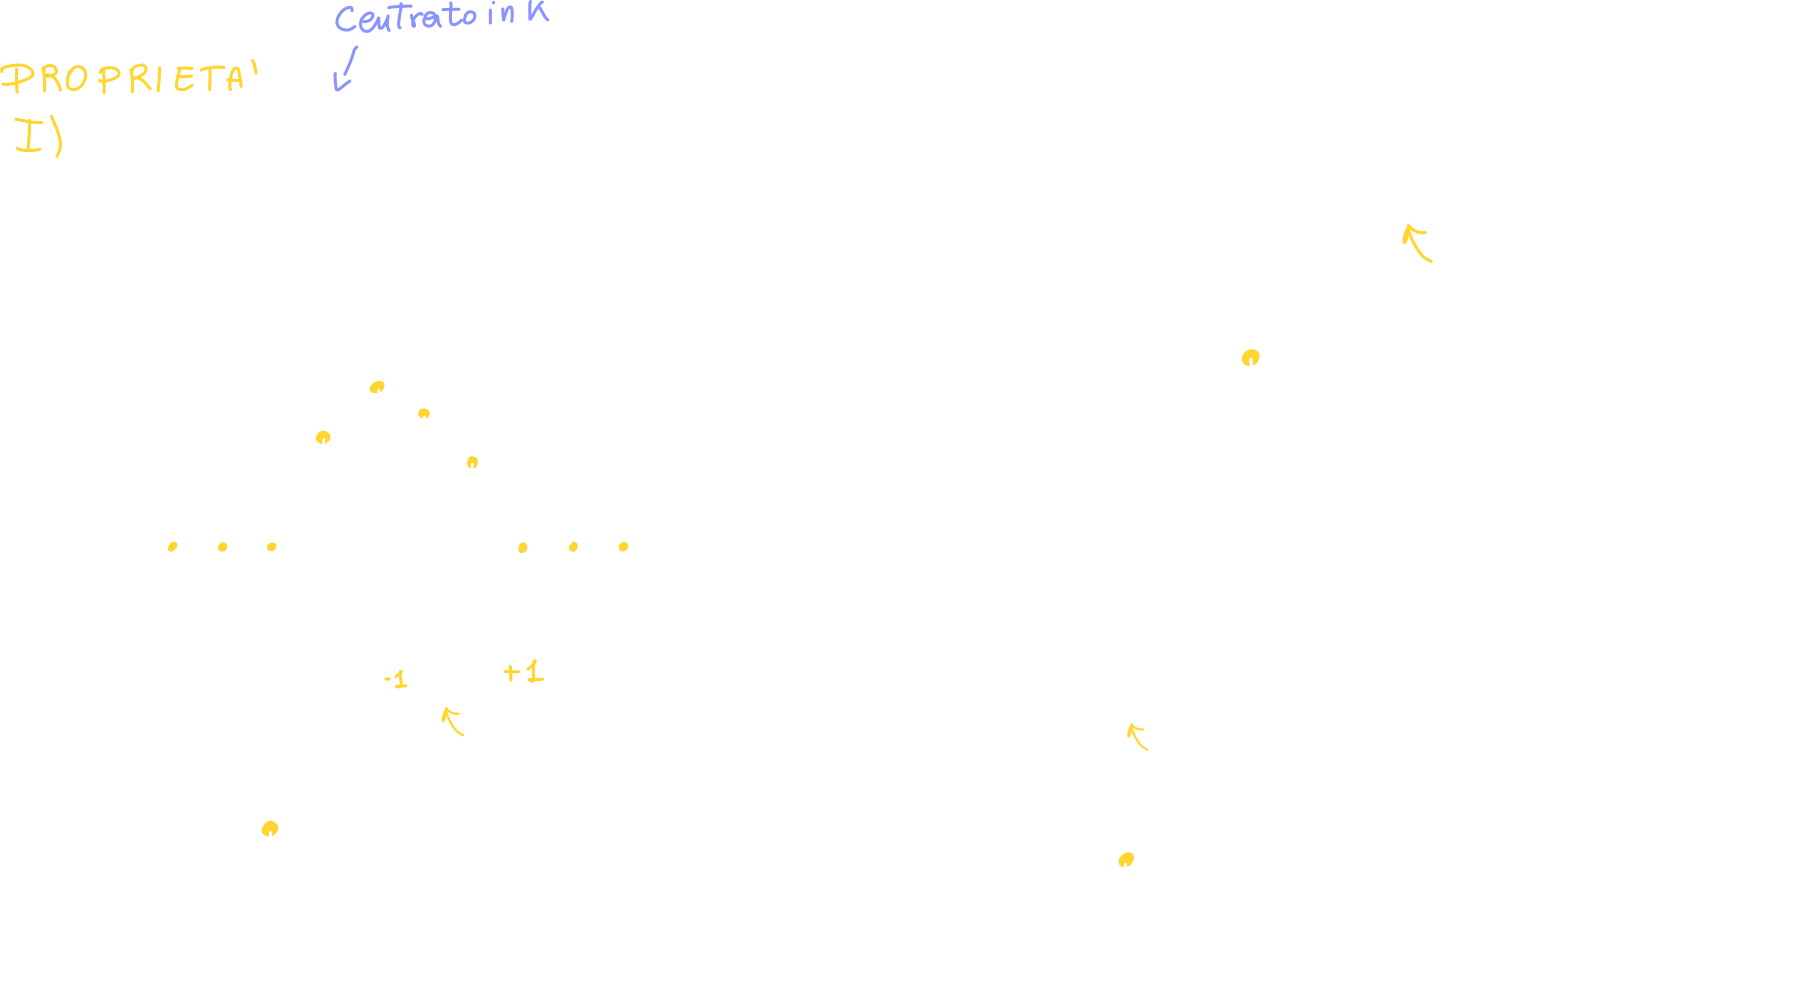 Centrato in K
PROPRIETA'
I)
-1 +1